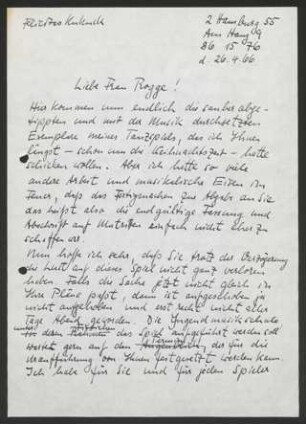 Felicitas Kukuck
2 Hamburg 55
Am Hang 9
86 15 76
d. 26.4.66
Liebe Frau Rogge!
Hier kommen nun endlich die sauber abge-
tippten und mit der Musik durchsetzten
Exemplare meines Tanzspiels, das ich Ihnen
längst - schon um die Weihnachtszeit - hatte
schicken wollen. Aber ich hatte so viele
andere Arbeit und musikalische Eisen im
Feuer, daß das Fertigmachen zur Abgabe an Sie
das heißt also die endgültige Fassung und
Abschrift auf Matritzen einfach nicht eher zu
schaffen war.
Nun hoffe ich sehr, daß Sie trotz der Verzögerung
die Lust auf dieses Spiel nicht ganz verloren
haben. Falls die Sache jetzt nicht gleich in
Ihre Pläne paßt, dann ist aufgeschoben ja
nicht aufgehoben und erst recht nicht aller
Tage Abend geworden. Die Jugendmusikschule
unter deren das Spiel aufgeführt werden soll
wartet gern auf den Termin der für die
Uraufführung von Ihnen festgesetzt werden kann.
Ich habe für Sie und für jeden Spieler